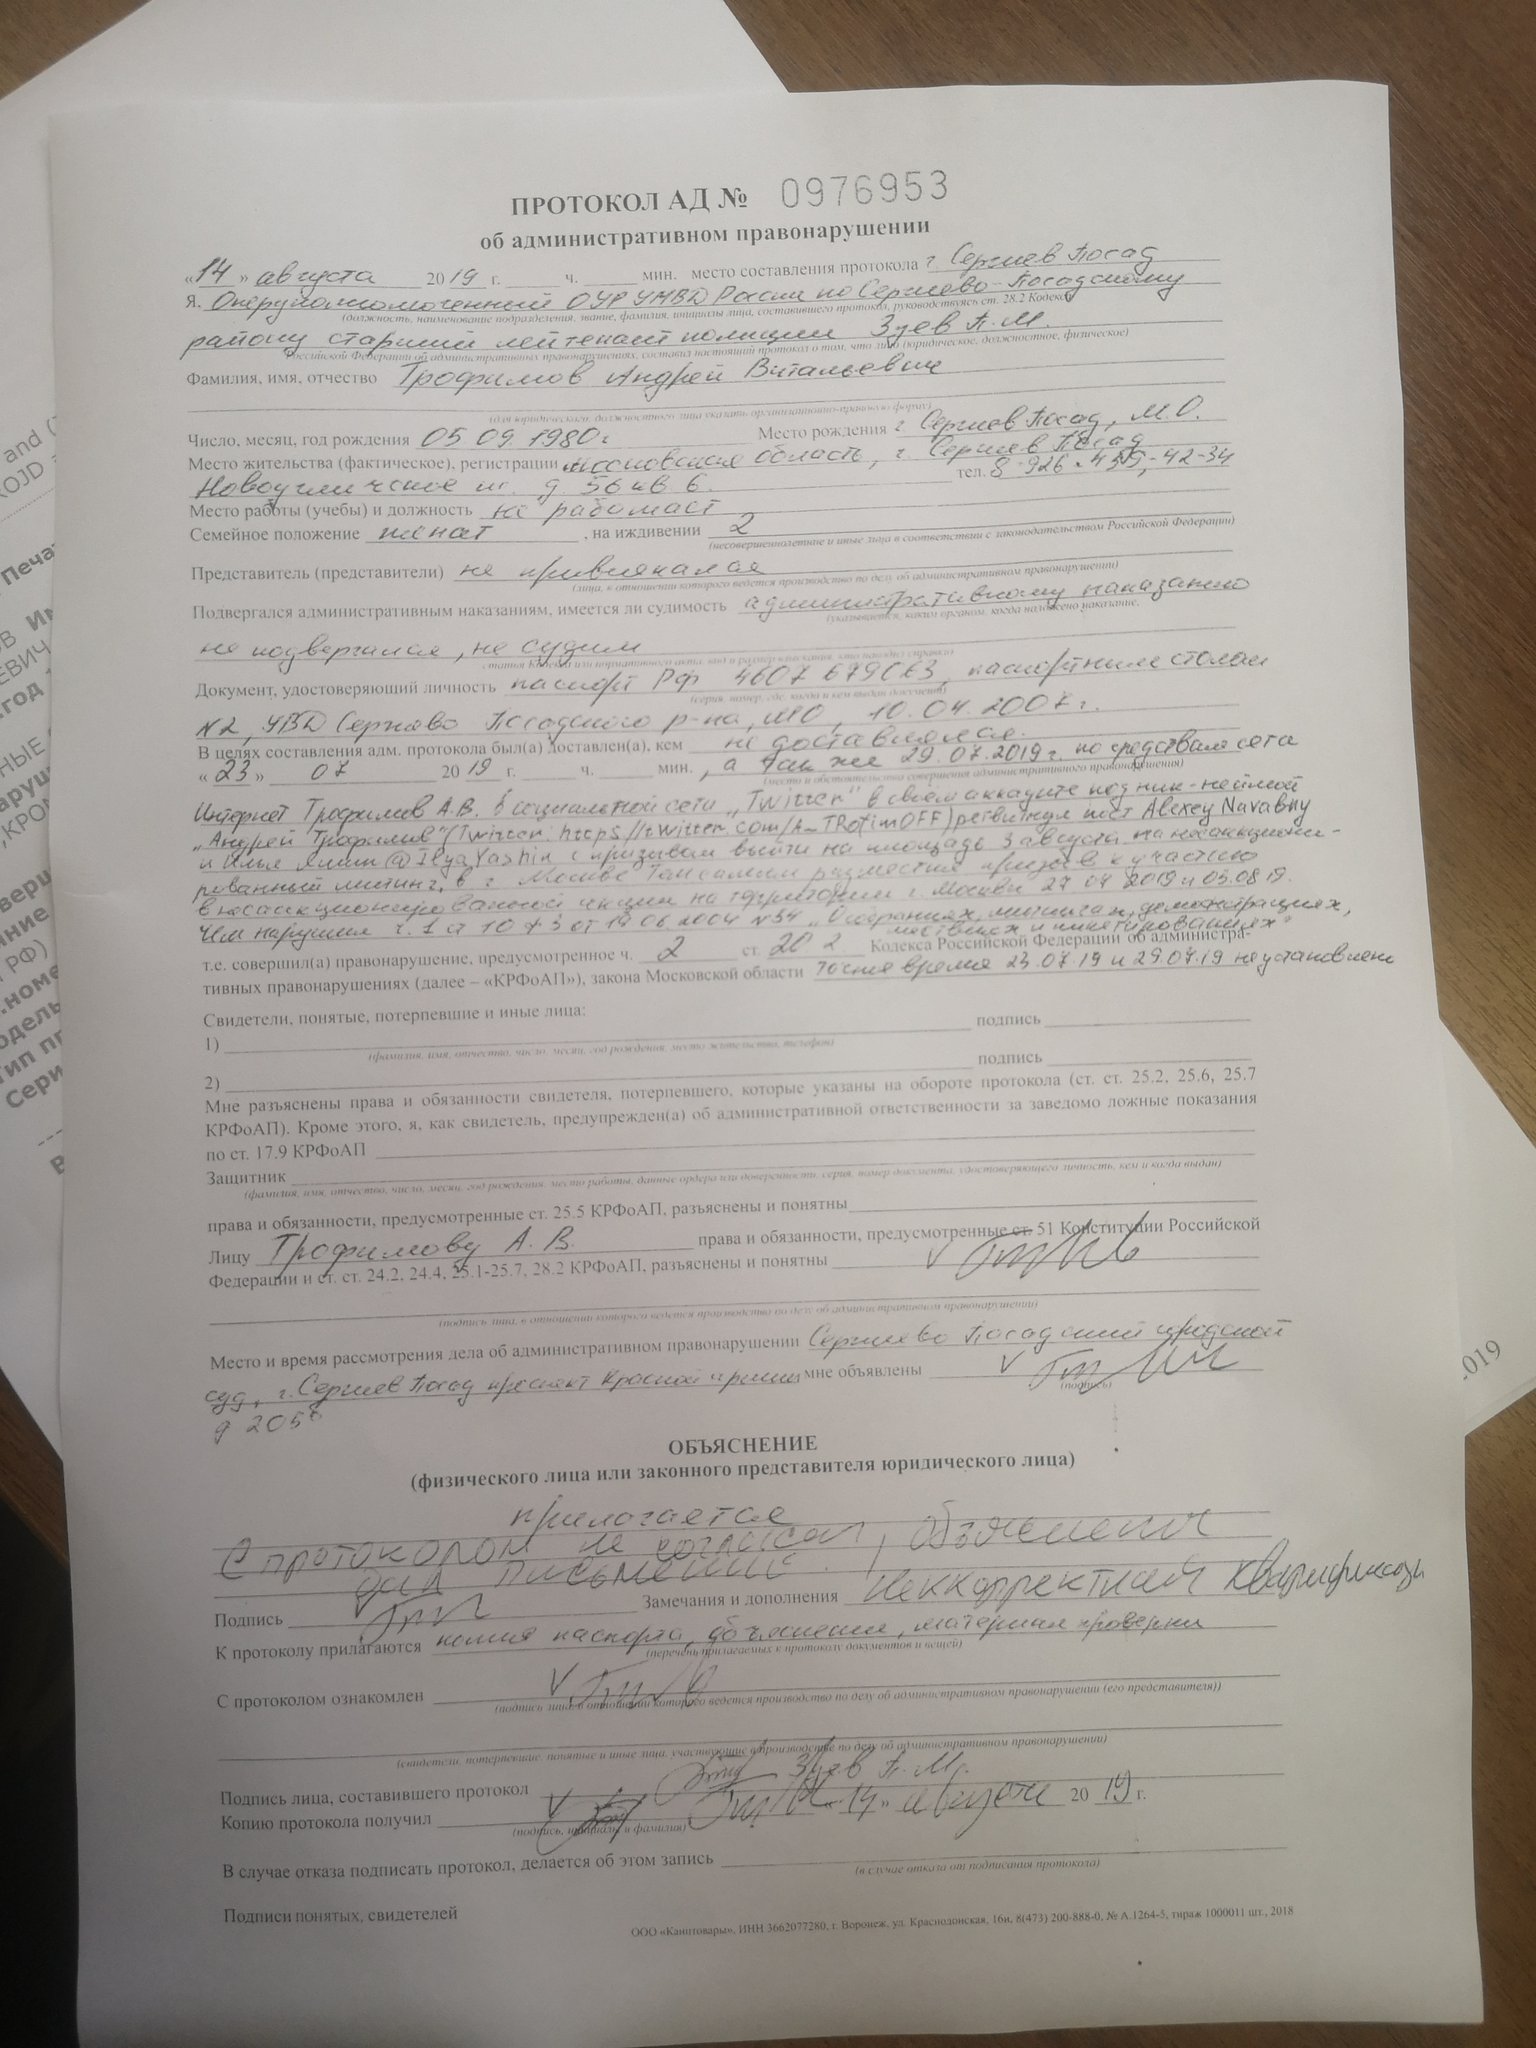 ПРОТОКОЛ АД № 0976953
об административном правонарушении
«14» августа 2019 г. ч. мин. место составления протокола г Сергиев Посад
Я, Оперуполномоченный ОУР УМВД России по Сергиево-Посадскому
(должность, наименование подразделения, звание, фамилия, инициалы лица, составившего протокол, руководствуясь ст. 28.2 Кодекса
району старший лейтенант полиции Зуев П.М.
Российской Федерации об административных правонарушениях, составил настоящий протокол о том, что лицо (юридическое, должностное, физическое)
Фамилия, имя, отчество Трофимов Андрей Витальевич
(для юридического, должностного лица указать организационно-правовую форму)
Число, месяц, год рождения 05 09. 1980г Место рождения г Сергиев Посад, М.О.
Место жительства (фактическое), регистрации Московская область, г. Сергиев Посад
Новоугличское ш. д. 56 кв 6. тел. 8-926-455-42-34
Место работы (учебы) и должность не работает
Семейное положение женат , на иждивении 2
(несовершеннолетние и иные лица в соответствии с законодательством Российской Федерации)
Представитель (представители) не привлекался
(лица, в отношении которого ведется производство по делу об административном правонарушении)
Подвергался административным наказаниям, имеется ли судимость административному наказанию
(указывается, каким органом, когда назначено наказание,
не подвергался, не судим
статья Кодекса или нормативного акта, вид и размер взыскания,
Документ, удостоверяющий личность паспорт РФ 4607 паспортным столом
(серия, номер, где, когда и кем выдан документ)
№2, УВД Сергиево Посадского р-на, МО, 10.04.2007г.
В целях составления адм. протокола был(а) доставлен(а), кем не доставлялся.
«23» 07 2019 г. ч. мин. , а так же 29.07.2019г. по средствам сети
(место и обстоятельства совершения административного правонарушения)
Интернет Трофимов А.В. в социальной сети „Twitter" в своем аккаунте под ник-неймом
„Андрей Трофимов" (Twitter: https//twitter.com/A_TRofimOFF) ретвитнул пост Alexey Navalny
и Илья Яшин @IlyaYashin с призывом выйти на площадь 3 августа на несанкциони-
рованный митинг, в г. Москве Тем самым разместил призыв к участию
в несанкционированной акции на территории г. Москвы 27 07 2019 и 03.08 19.
Чем нарушил ч. 1 ст 10 ФЗ от 19.06.2004 №54 „О собраниях, митингах, демонстрациях,
шествиях и пикетированиях"
т.е. совершил(а) правонарушение, предусмотренное ч. 2 ст. 20 2 Кодекса Российской Федерации об администра-
тивных правонарушениях (далее – «КРФоАП»), закона Московской области точное время 23.07.19 и 29.07.19 не установлено
Свидетели, понятые, потерпевшие и иные лица:
1) подпись
(фамилия, имя, отчество, число, месяц, год рождения, место жительства, телефон)
2) подпись
Мне разъяснены права и обязанности свидетеля, потерпевшего, которые указаны на обороте протокола (ст. ст. 25.2, 25.6, 25.7
КРФоАП). Кроме этого, я, как свидетель, предупрежден(а) об административной ответственности за заведомо ложные показания
по ст. 17.9 КРФоАП
Защитник
(фамилия, имя, отчество, число, месяц, год рождения, место работы, данные ордера или доверенности, серия, номер документа, удостоверяющего личность, кем и когда выдан)
права и обязанности, предусмотренные ст. 25.5 КРФоАП, разъяснены и понятны
Лицу Трофимову А. В. права и обязанности, предусмотренные ст. 51 Конституции Российской
Федерации и ст. ст. 24.2, 24.4, 25.1-25.7, 28.2 КРФоАП, разъяснены и понятны
(подпись лица, в отношении которого ведется производство по делу об административном правонарушении)
Место и время рассмотрения дела об административном правонарушении Сергиево Посадский городской
суд, г. Сергиев Посад проспект Красной армии мне объявлены
(подпись)
д 205
ОБЪЯСНЕНИЕ
(физического лица или законного представителя юридического лица)
прилагается
С протоколом не согласен, объяснения
дал письменно.
Подпись Замечания и дополнения
К протоколу прилагаются копия паспорта, объяснение, материал проверки
(перечень прилагаемых к протоколу документов и вещей)
С протоколом ознакомлен
(подпись лица в отношении которого ведется производство по делу об административном правонарушении (его представителя))
(свидетели, потерпевшие, понятые и иные лица, участвующие в производстве по делу об административном правонарушении)
Подпись лица, составившего протокол Зуев П. М.
Копию протокола получил «14» августа 2019 г.
(подпись, инициалы и фамилия)
В случае отказа подписать протокол, делается об этом запись
(в случае отказа от подписания протокола)
Подписи понятых, свидетелей
ООО «Канцтовары», ИНН 3662077280, г. Воронеж, ул. Краснодонская, 16и, 8(473) 200-888-0, № А.1264-5, тираж 1000011 шт., 2018